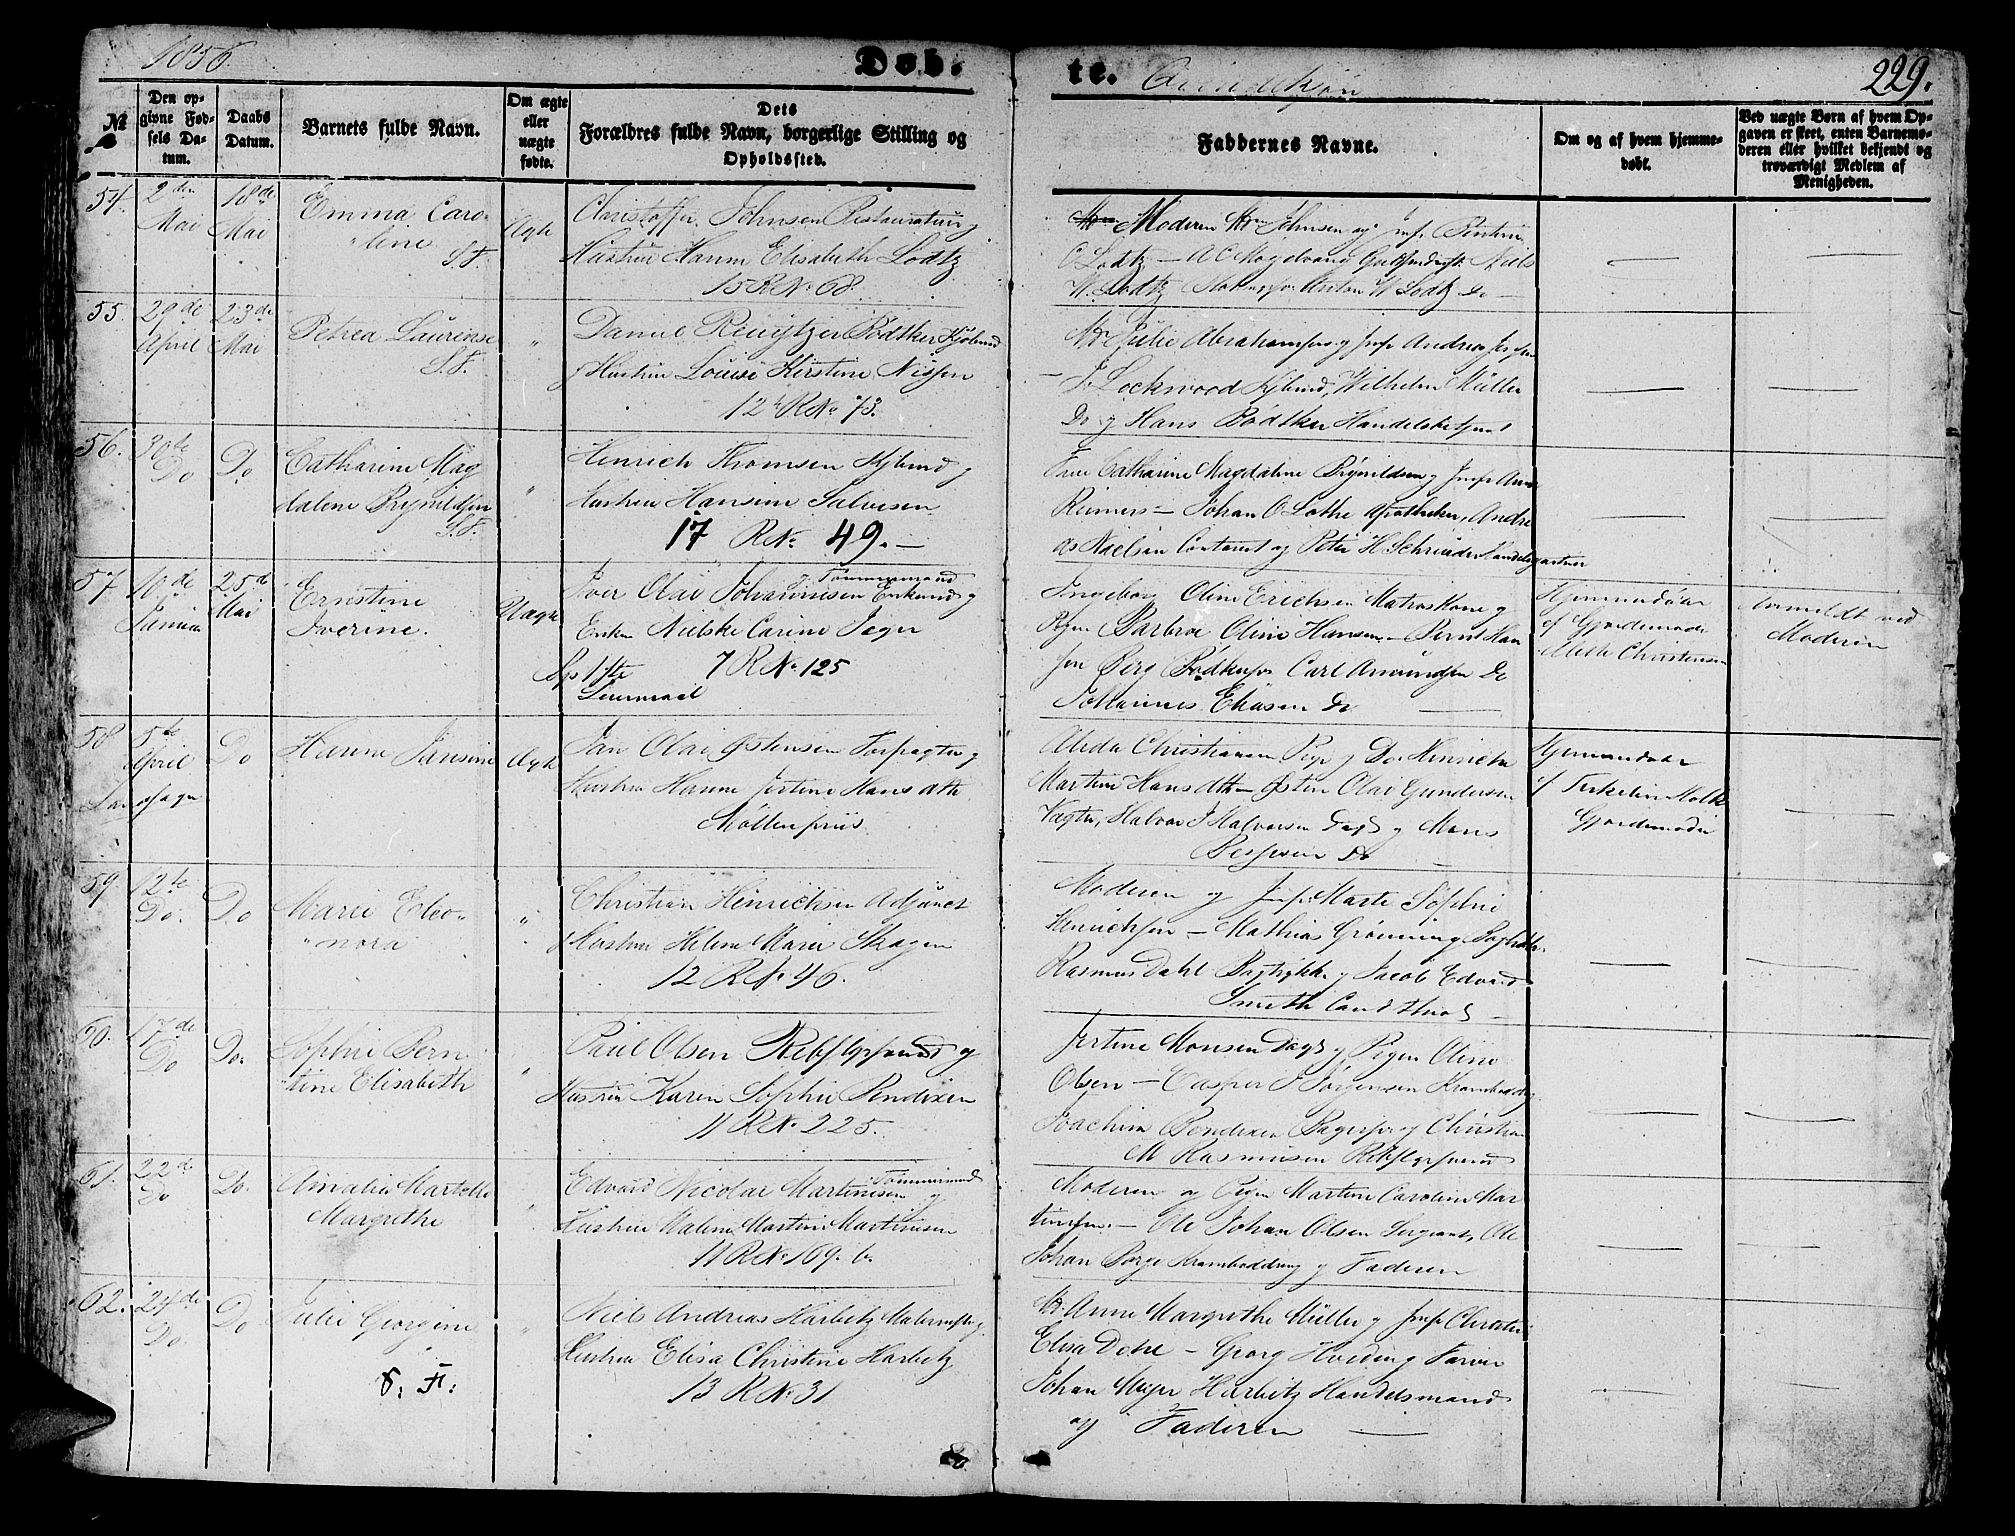 1856.
Døb.
te.
Qvindekjøn
229.
№
Den op-
givne Fød-
sels Da-
tum.
Daabs
Datum.
Barnets fulde Navn.
Om ægte
eller
uægte
fødte.
Dets
Forældres fulde Navn, borgerlige Stilling og
Opholdssted.
Faddernes Navne.
Om og af hvem hjemme-
døbt.
Ved uægte Børn af hvem Op-
gaven er skeet, enten Barnemo-
deren eller hvilket bekjendt og
troværdigt Medlem af
Menigheden.
54.
2den
Mai
18de
Mai
Emma Caro-
line
S.F.
Ægte
Christoffer Johnsen Restaurateur og
Hustru Hanne Elisabeth Lodtz
15 R № 68.
Moderen Johnsen og Jmf
C Lodtz — A C
W. Lodtz W Lodtz Do —
55.
29de
April
23de
Mai
Petrea Laurense
S.F.
"
Daniel Bødtker Kjøbmd
og Hustru Louise Kirstine Nissen
12 R № 73.
Julie Abrahamsen og Jmf Andrea
— J. Lockwood Kjbmd, Wilhelm Müller
Do og Hans Bødtker Handelsbetjent
56.
30te
Do
Do
Catharine Mag
dalene Brynildsen
S.F.
"
Henrich Thomsen Kjbmd og
Hustru Hansine Salvesen
17 R № 49. —
Frue Catharine Magdalene Brynildsen og Jmf Anne
Reimers — Johan O Lothe Apotheker, Andre
as Nielsen Contorist og Peter H Schrøder Handelsgartner
57
10de
Januar
25de
Mai
Ernstine
Iverine.
Uægte
Iver Olai Johannesen Tømmermand Enkemd og
Enken Nielske Carine Jæger
7 R № 125
1ste
Leiermaal
Ingeborg Oline Erichsen Matroskone og
Pigen Barbroe Oline Hansen — Bernt Han
sen Berg Carl Amundsen Do
Johannes Do
Hjemmedøbt
af Gjordemoder
Christensen
Anmeldt ved
Moderen
58
5te
April
Landsogn
Do
Hanne Jansine
Ægte
Jan Olai Østensen Forpagter og
Hustru Hanne Jertine Hansdtr
Møllenpriis
Alida Christiansen Pige og Do Hinricke
Martine Hansdtr — Østen Olai Gundersen
Vagter, Halvor J Halvorsen Dagl og Mons
Do —
Hjemmedøbt
af Holk
Gjordemoder
59
12te
Do.
Do
Marie Eleo-
nora
"
Christian Hinrichsen Adjunct
og Hustru Helene Marie Skagen
12 R № 46.
Moderen og Jmf. Marte Sophie
Henrichsen — Mathias Grønning
Rasmus Dahl og Jacob Edvard
Smith Cand.
60.
17de
Do
Do.
Sophie Bern
tine Elisabeth
"
Paul Olsen og
Hustru Karen Sophie Bendixen
11 R № 225.
Jertine Monsen Dagl og Pigen Oline
Olsen — Casper J Jørgensen
Joachim Bendixen og Christian
M Rasmussen
61.
22de
Do
Do.
Amalia Martelle
Margrethe
"
Edvard Nicolai Martinusen Tømmermand og
Hustru Malene Martine Martinusen
11 R № 169. b.
Moderen og Pigen Martine Caroline Mar
tinusen. — Ole Johan Olsen Sergeant, Ole
Johan Berge Kramboddreng og Faderen
62.
24de
Do.
Do
Julie Georgine
S: F:
"
Niels Andreas Harbitz Malermester og
Hustru Elisa Christine Harbitz
13 R № 31
Anne Margrethe Müller og Jmf Christi
Elisa Dahl — Georg Hveding Farver
Johan Meyer Harbitz Handelsmand
og Faderen —